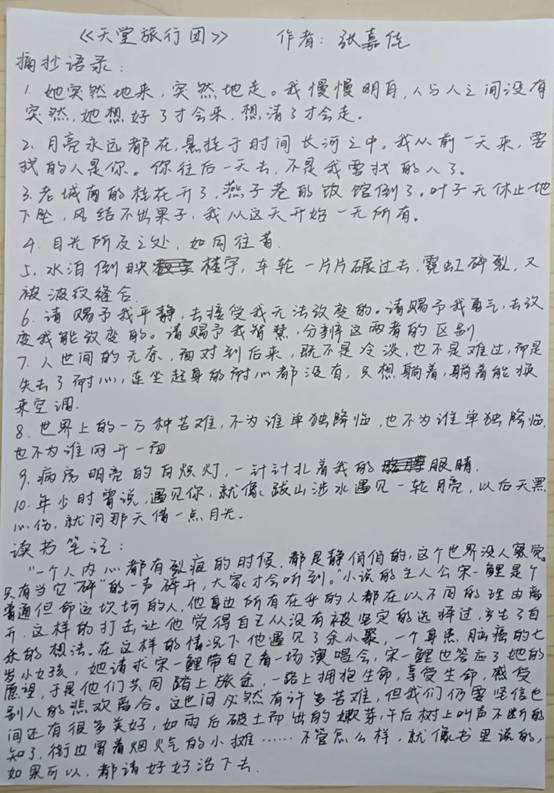 《天堂旅行团》 作者：张嘉佳
摘抄语录：
1. 她突然地来，突然地走。我慢慢明白，人与人之间没有
突然，她想好了才会来，想清了才会走。
2. 月亮永远都在，悬挂于时间长河之中。我从前一天来，要
找的人是你。你往后一天去，不是我要找的人了。
3. 老城南的桂花开了，燕子巷的饭馆倒了。叶子无休止地
下坠，风结不出果子，我从这天开始一无所有。
4. 目光所及之处，如同往昔
5. 水泊倒映楼宇，车轮一片片碾过去，霓虹碎裂，又
被波纹缝合
6. 请赐予我平静，去接受我无法改变的。请赐予我勇气，去改
变我能改变的。请赐予我智慧，分辨这两者的区别
7. 人世间的无奈，面对到后来，既不是冷淡，也不是难过，而是
失去了耐心，连坐起身的耐心都没有，只想躺着，躺着能换
来空调.
8. 世界上的一万种苦难，不为谁单独降临，也不为谁单独降临，
也不为谁网开一面
9. 病房明亮的白炽灯，一针针扎着我的眼睛，
10. 年少时曾说，遇见你，就像跋山涉水遇见一轮月亮，以后天黑
心伤，就问那天借一点月光。
读书笔记：
“一个人内心都有裂痕的时候，都是静悄悄的，这个世界没人察觉，
只有当它“砰”的一声碎开，大家才会听到。”小说的主人公宋一鲤是个
普通但命运坎坷的人，他身边所有在乎的人都在以不同的理由离
开，这样的打击让他觉得自己从没有被坚定的选择过，产生了自
杀的想法。在这样的情况下他遇见了余小聚，一个身患脑癌的七
岁小女孩，她请求宋一鲤带自己看一场演唱会，宋一鲤也答应了她的
愿望，于是他们共同踏上旅途，一路上拥抱生命，享受生命，感受
别人的悲欢离合。这世间必然有许多苦难，但我们仍要坚信世
间还有很多美好，如雨后破土即出的嫩芽，午后树上叫声不断的
知了，街边冒着烟火气的小摊……不管怎么样，就像书里说的，
如果可以，都请好好活下去.